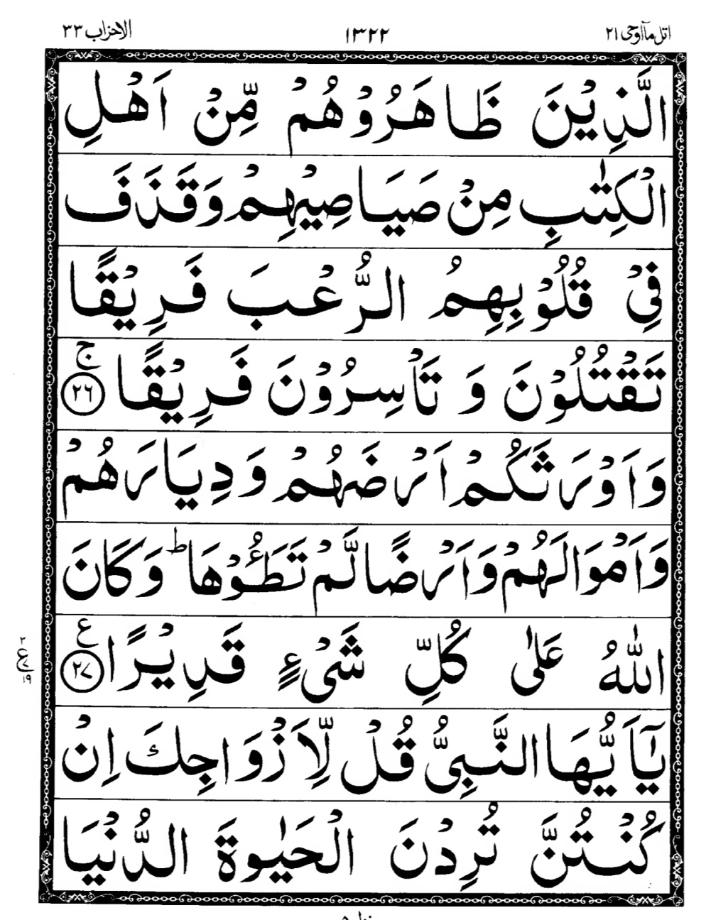 اتل ما اوحی ۲۱ ۱۳۲۲ الاحزاب ۳۳
الَّذِيْنَ ظَاهَرُوْهُمْ مِّنْ اَهْلِ
الْكِتٰبِ مِنْ صَيَاصِيْهِمْ وَقَذَفَ
فِيْ قُلُوْبِهِمُ الرُّعْبَ فَرِيْقًا
تَقْتُلُوْنَ وَ تَاْسِرُوْنَ فَرِيْقًا ج ۲۶
وَاَوْرَثَكُمْ اَرْضَهُمْ وَدِيَارَهُمْ
وَاَمْوَالَهُمْ وَاَرْضًا لَّمْ تَطَـُٔوْهَا ط وَكَانَ
اللّٰهُ عَلٰى كُلِّ شَيْءٍ قَدِيْرًا ع ۲۷
۲ ع ۱۹
يٰٓاَيُّهَا النَّبِيُّ قُلْ لِّاَزْوَاجِكَ اِنْ
كُنْتُنَّ تُرِدْنَ الْحَيٰوةَ الدُّنْيَا